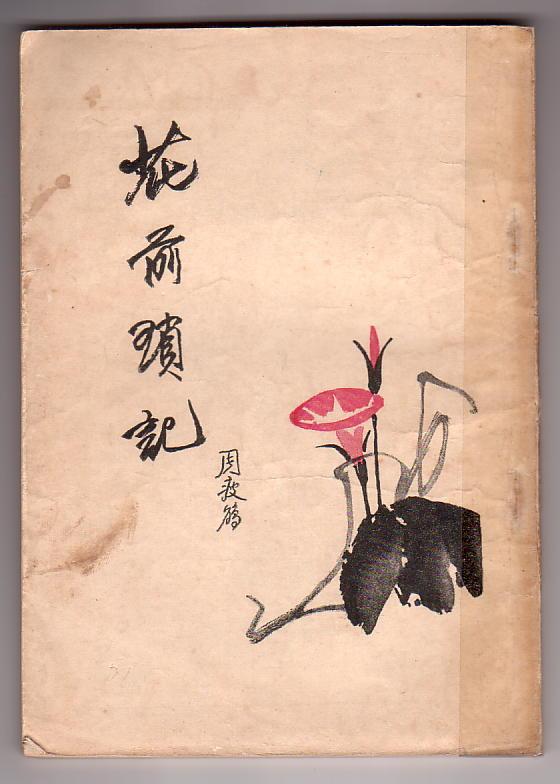 花前瑣記
周瘦鵑